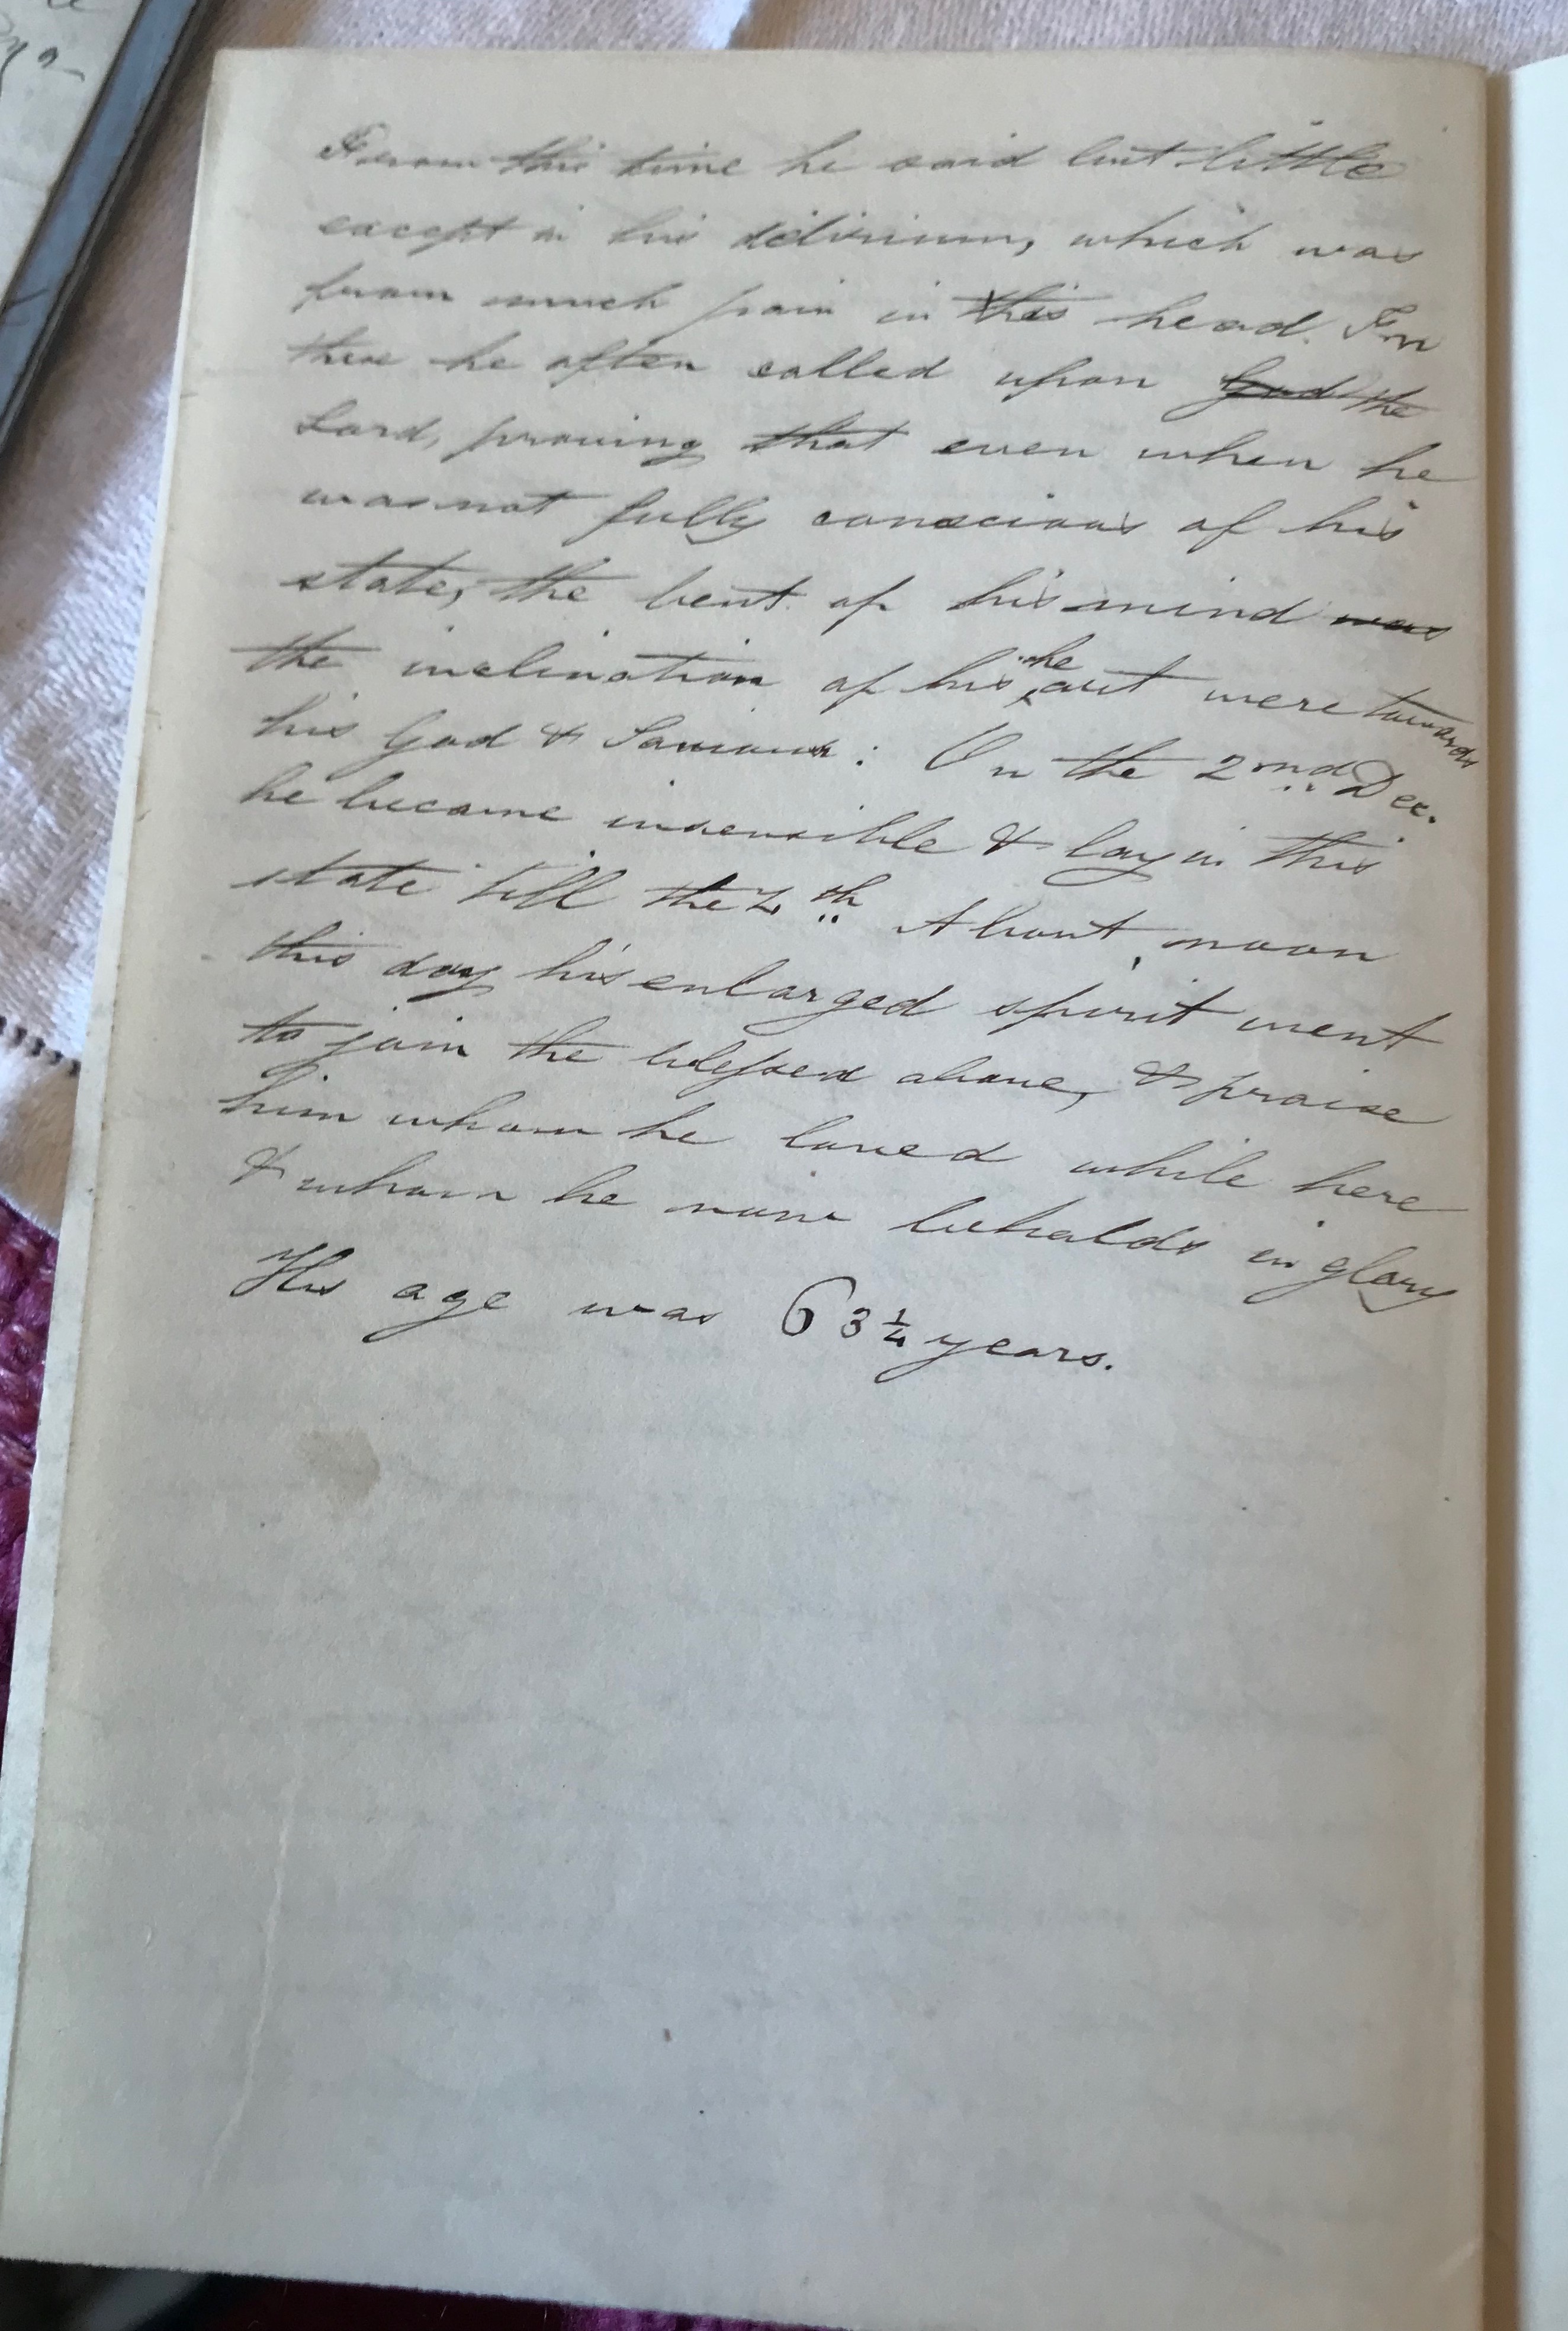 From this time he said but little
except in his delirium, which was
from much pain in his head. In
these he often called upon ~~God~~ the
Lord, proving that even when he
was not fully conscious of his
state, the bent of his mind ~~was~~
the inclination of his heart were towards
his God & Saviour: On the 2nd Dec.
he became insensible & lay in this
state till the 4th About noon
this day his enlarged spirit went
to join the blessed above, & praise
him whom he loved while here
& whom he now beholds in glory
His age was 63 1/4 years.